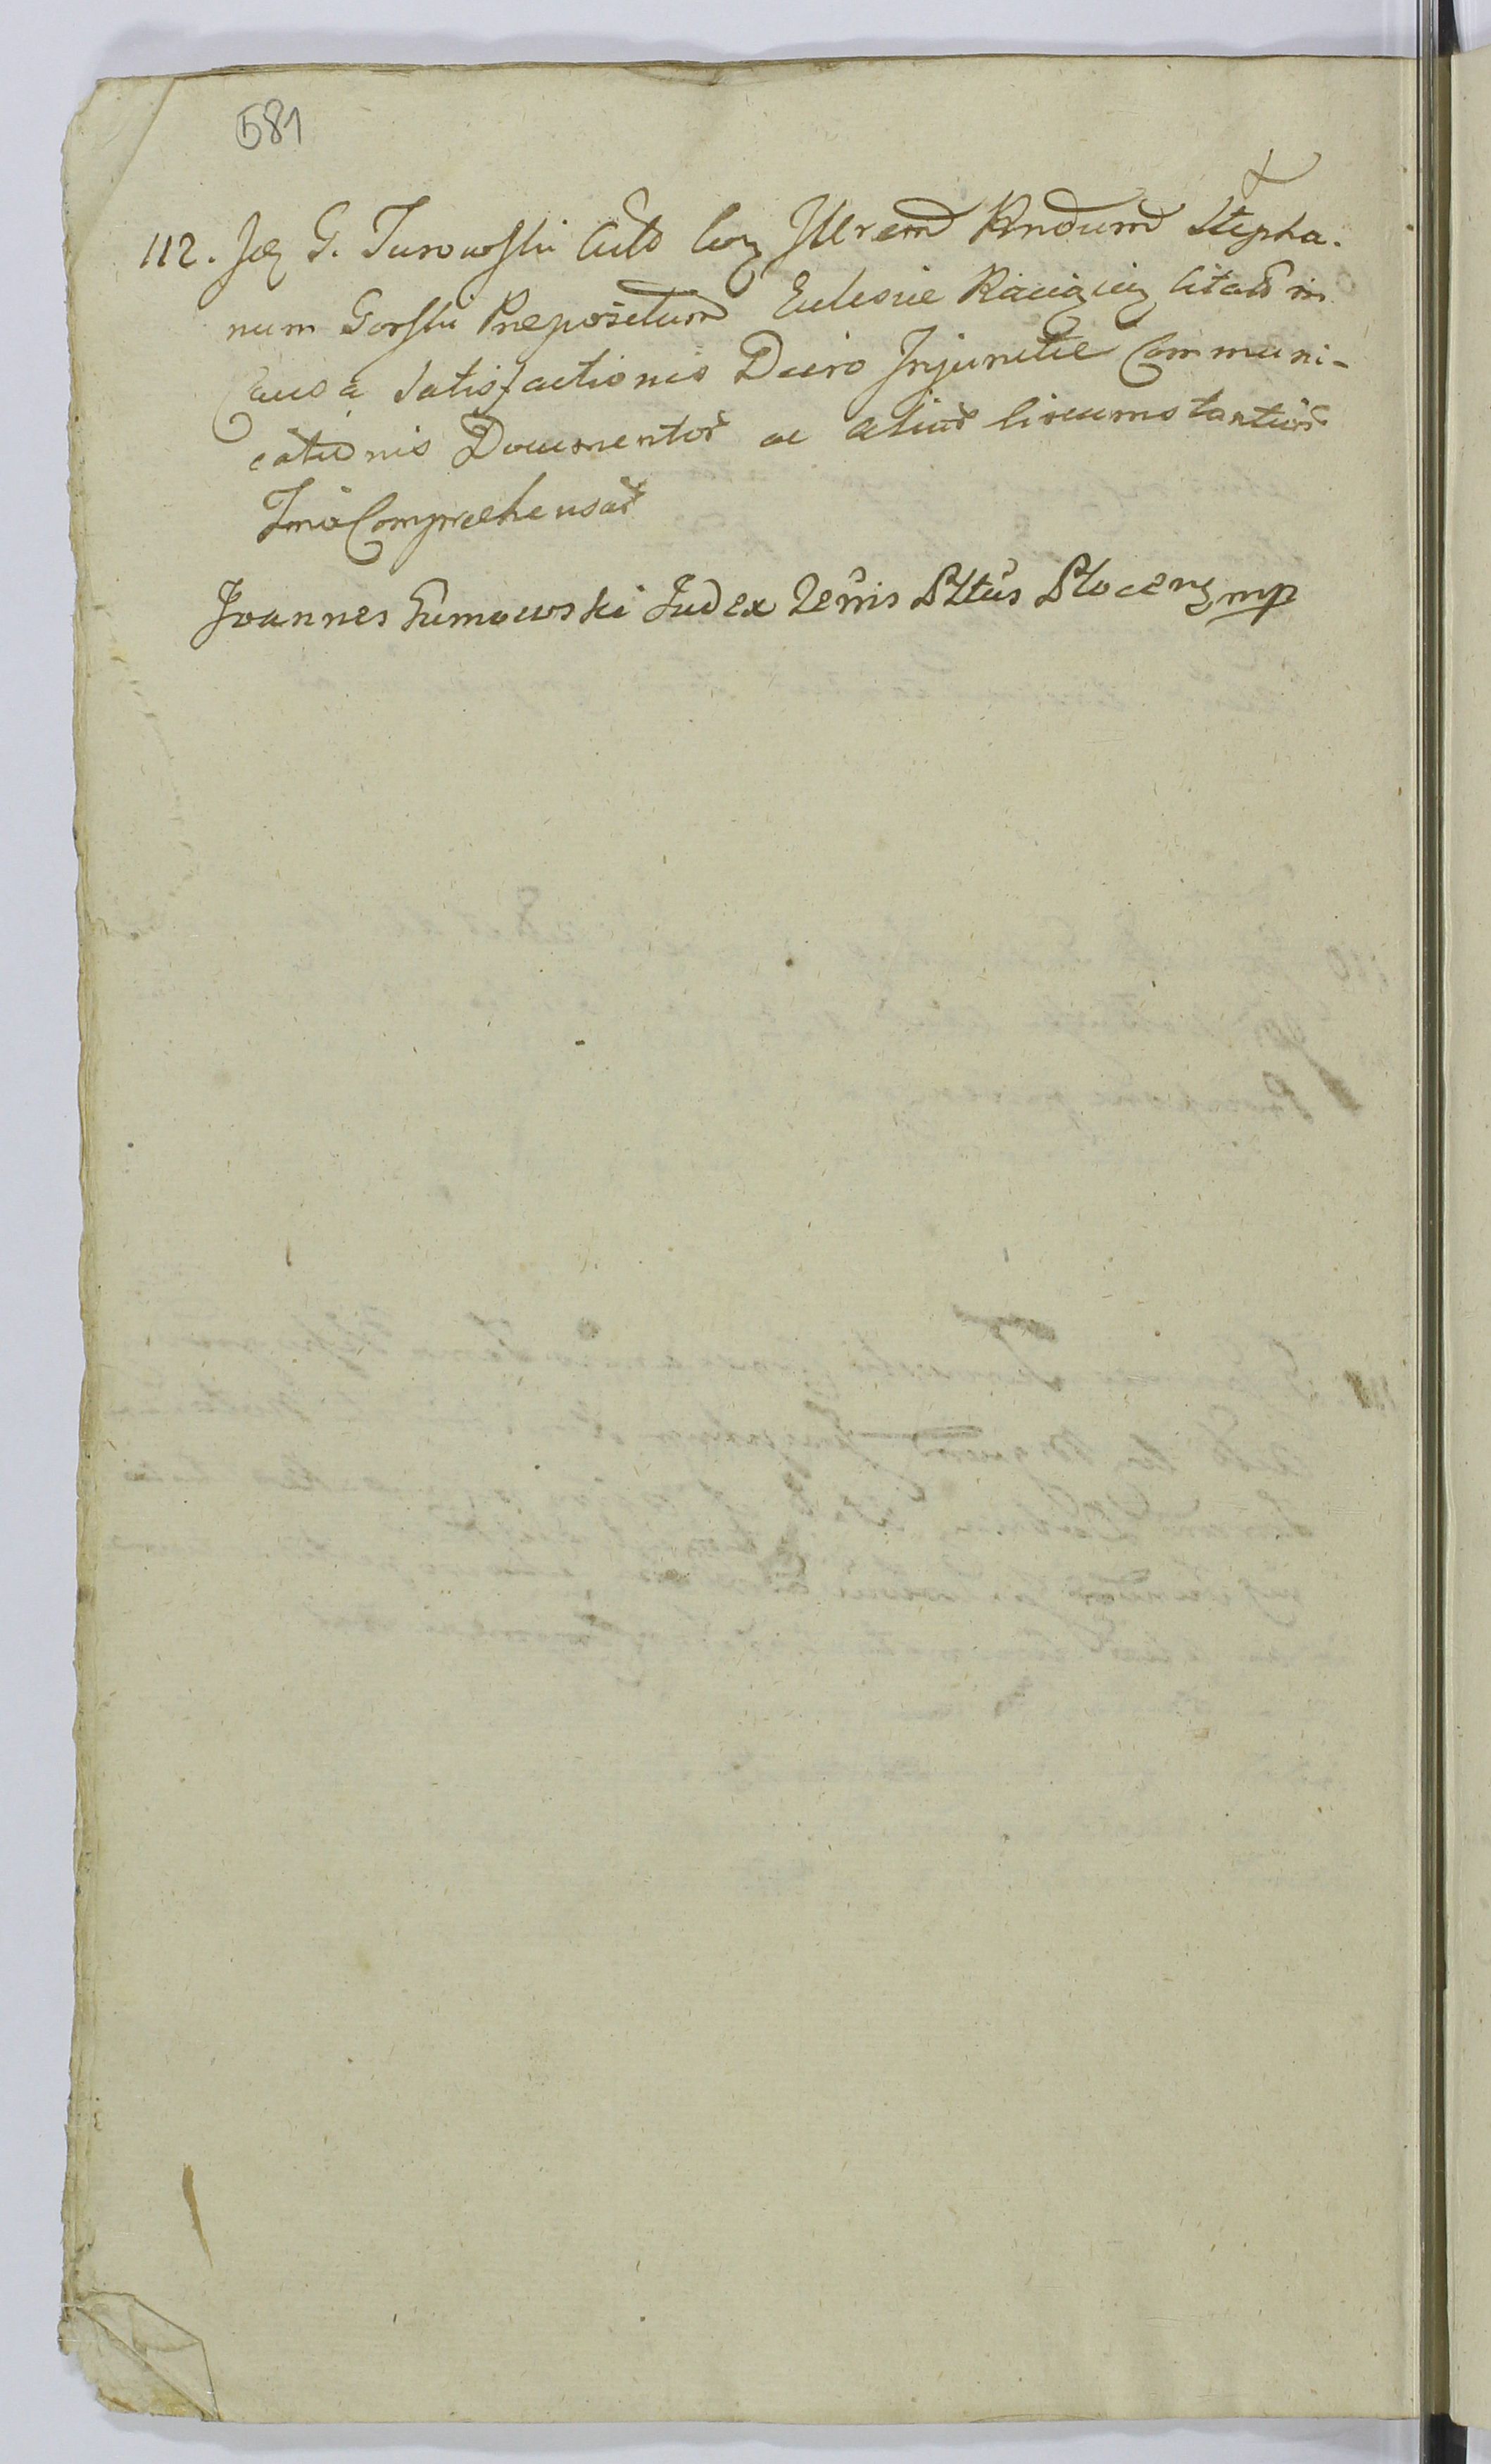 581
112. Jeg G. Turowski Actò Cong Illrem̃ Rndum̃ Stepha-
num Gorski Præpositum̃ Eclesiæ Raciązien Citatũ in
Causa Satisfactionis Decro Injunctæ Communi-
cationis Documentor̃ ac aliar̃ Circumstantiar̃
Comprehensar̃
Joannes Sumowski Judex Zeṁris Pltus Plocen mp